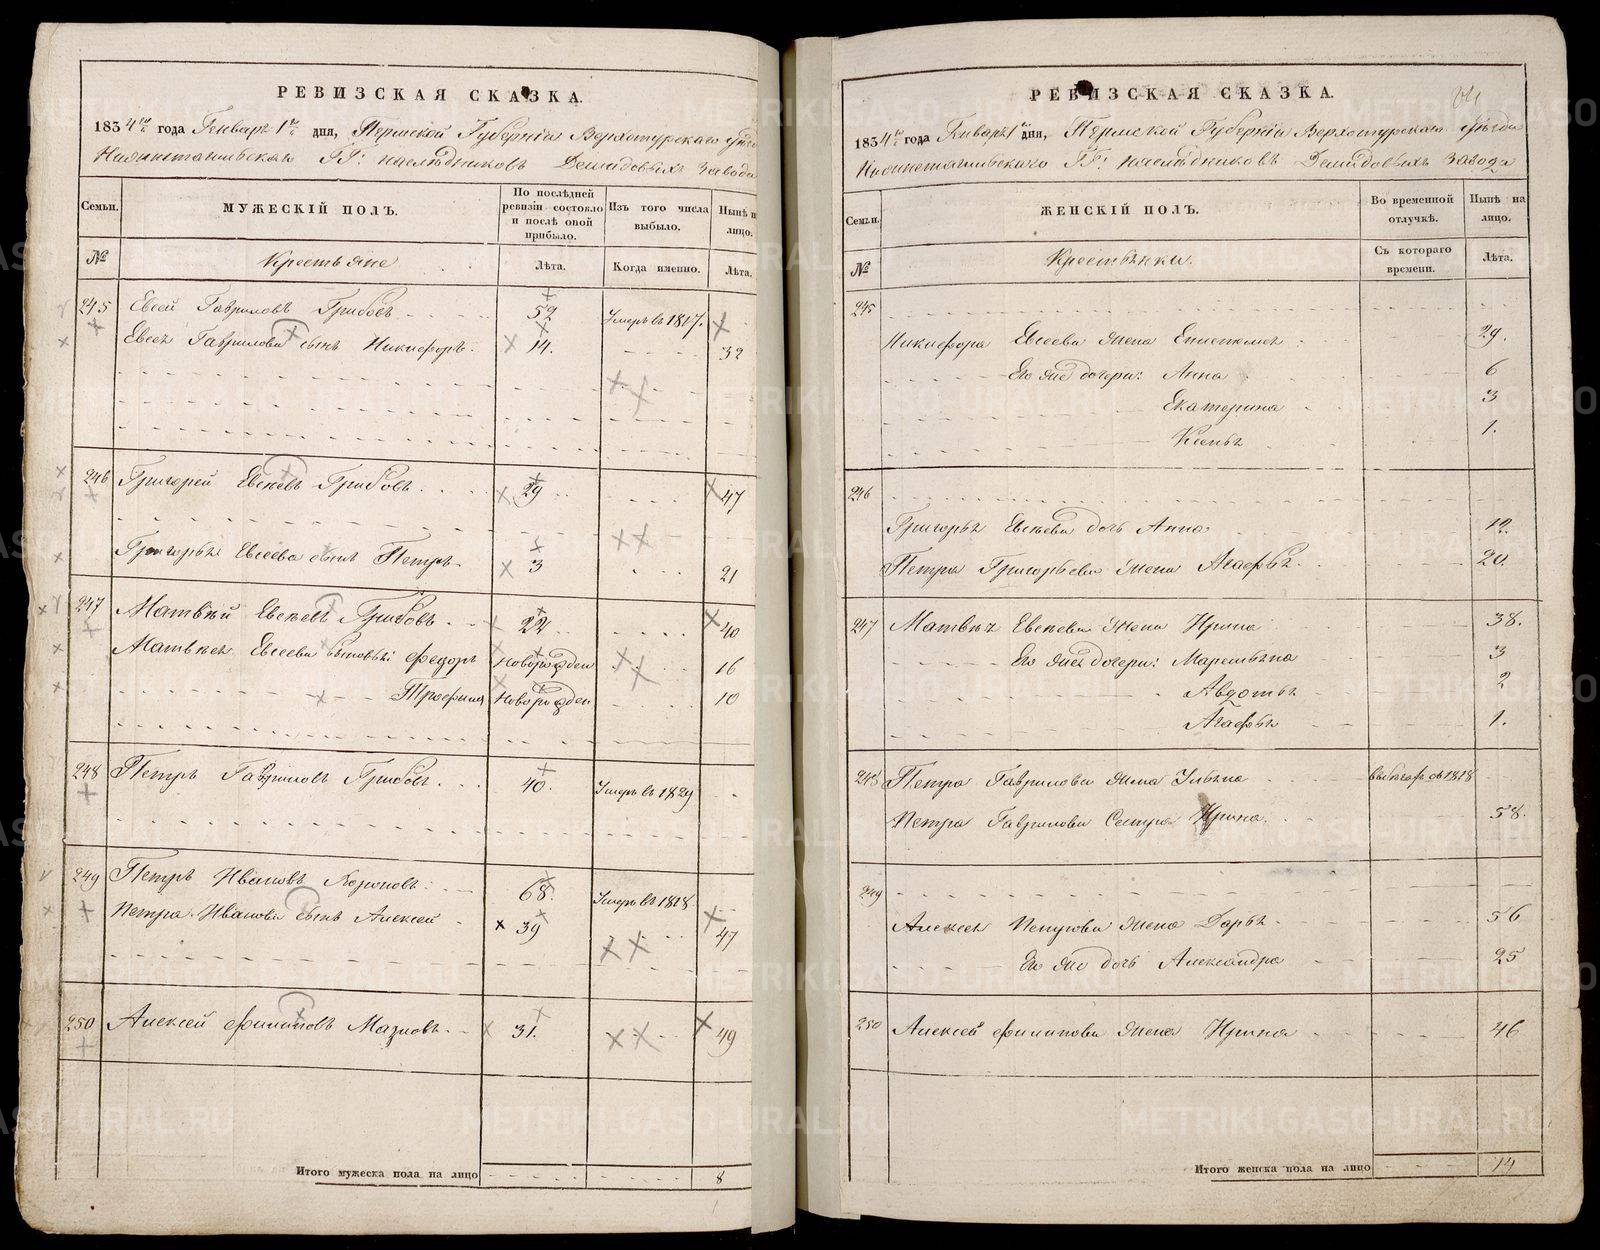 РЕВИЗСКАЯ СКАЗКА.
1834го года Генваря 1го дня, Пермской Губернiи Верхотурскаго уѣзда
Нижнетагильскаго ГГ: наслѣдниковъ Демидовыхъ завода
Семьи. МУЖЕСКIЙ ПОЛЪ. По послѣдней ревизiи состояло и послѣ оной прибыло. Изъ того числа выбыло. Нынѣ на лицо.
№ Крестьяне Лѣта. Когда именно. Лѣта.
245 Евсей Гавриловъ Грибовъ 52 Умеръ въ 1817.
Евсея Гаврилова сынъ Никифоръ 14. 32
246 Григорей Евсѣевъ Грибовъ 29 47
Григорья Евсеева сынъ Петръ 3 21
247 Матвѣй Евсѣевъ Грибовъ 22 40
Матвѣя Евсеева сыновья: Федоръ Новорожден 16
Трофимъ Новорожден 10
248 Петръ Гавриловъ Грибовъ 40. Умеръ въ 1829
249 Петръ Ивановъ 68. Умеръ въ 1818
Петра Иванова сынъ Алексей 39 47
250 Алексей Филиповъ Мазловъ 31. 49
Итого мужеска пола на лицо 8
РЕВИЗСКАЯ СКАЗКА.
1834го года Генваря 1го дня, Пермской Губернiи Верхотурскаго уѣзда
Нижнетагильскаго ГГ: наслѣдниковъ Демидовыхъ завода
Семьи. ЖЕНСКIЙ ПОЛЪ. Во временной отлучкѣ. Нынѣ на лицо.
№ Крестьянки. Съ котораго времени. Лѣта.
245
Никифора Евсеева жена Епистимея 29.
Его же дочери: Анна 6
Екатерина 3
Ксенья 1.
246
Григорья Евсѣева дочь Анна 12.
Петра Григорьева жена Агафья 20.
247 Матвѣя Евсѣева жена Ирина 38.
Его же дочери: Маремьяна 3
Авдотья 2
Агафья 1.
248 Петра Гаврилова жена Ульяна 1818
Петра Гаврилова Сестра Ирина 58.
249
Алексея Петрова жена Дарья 56
Его же дочь Александра 25
250 Алексея Филипова жена Ирина 46
Итого женска пола на лицо 14
METRIKI.GASO-URAL.RU